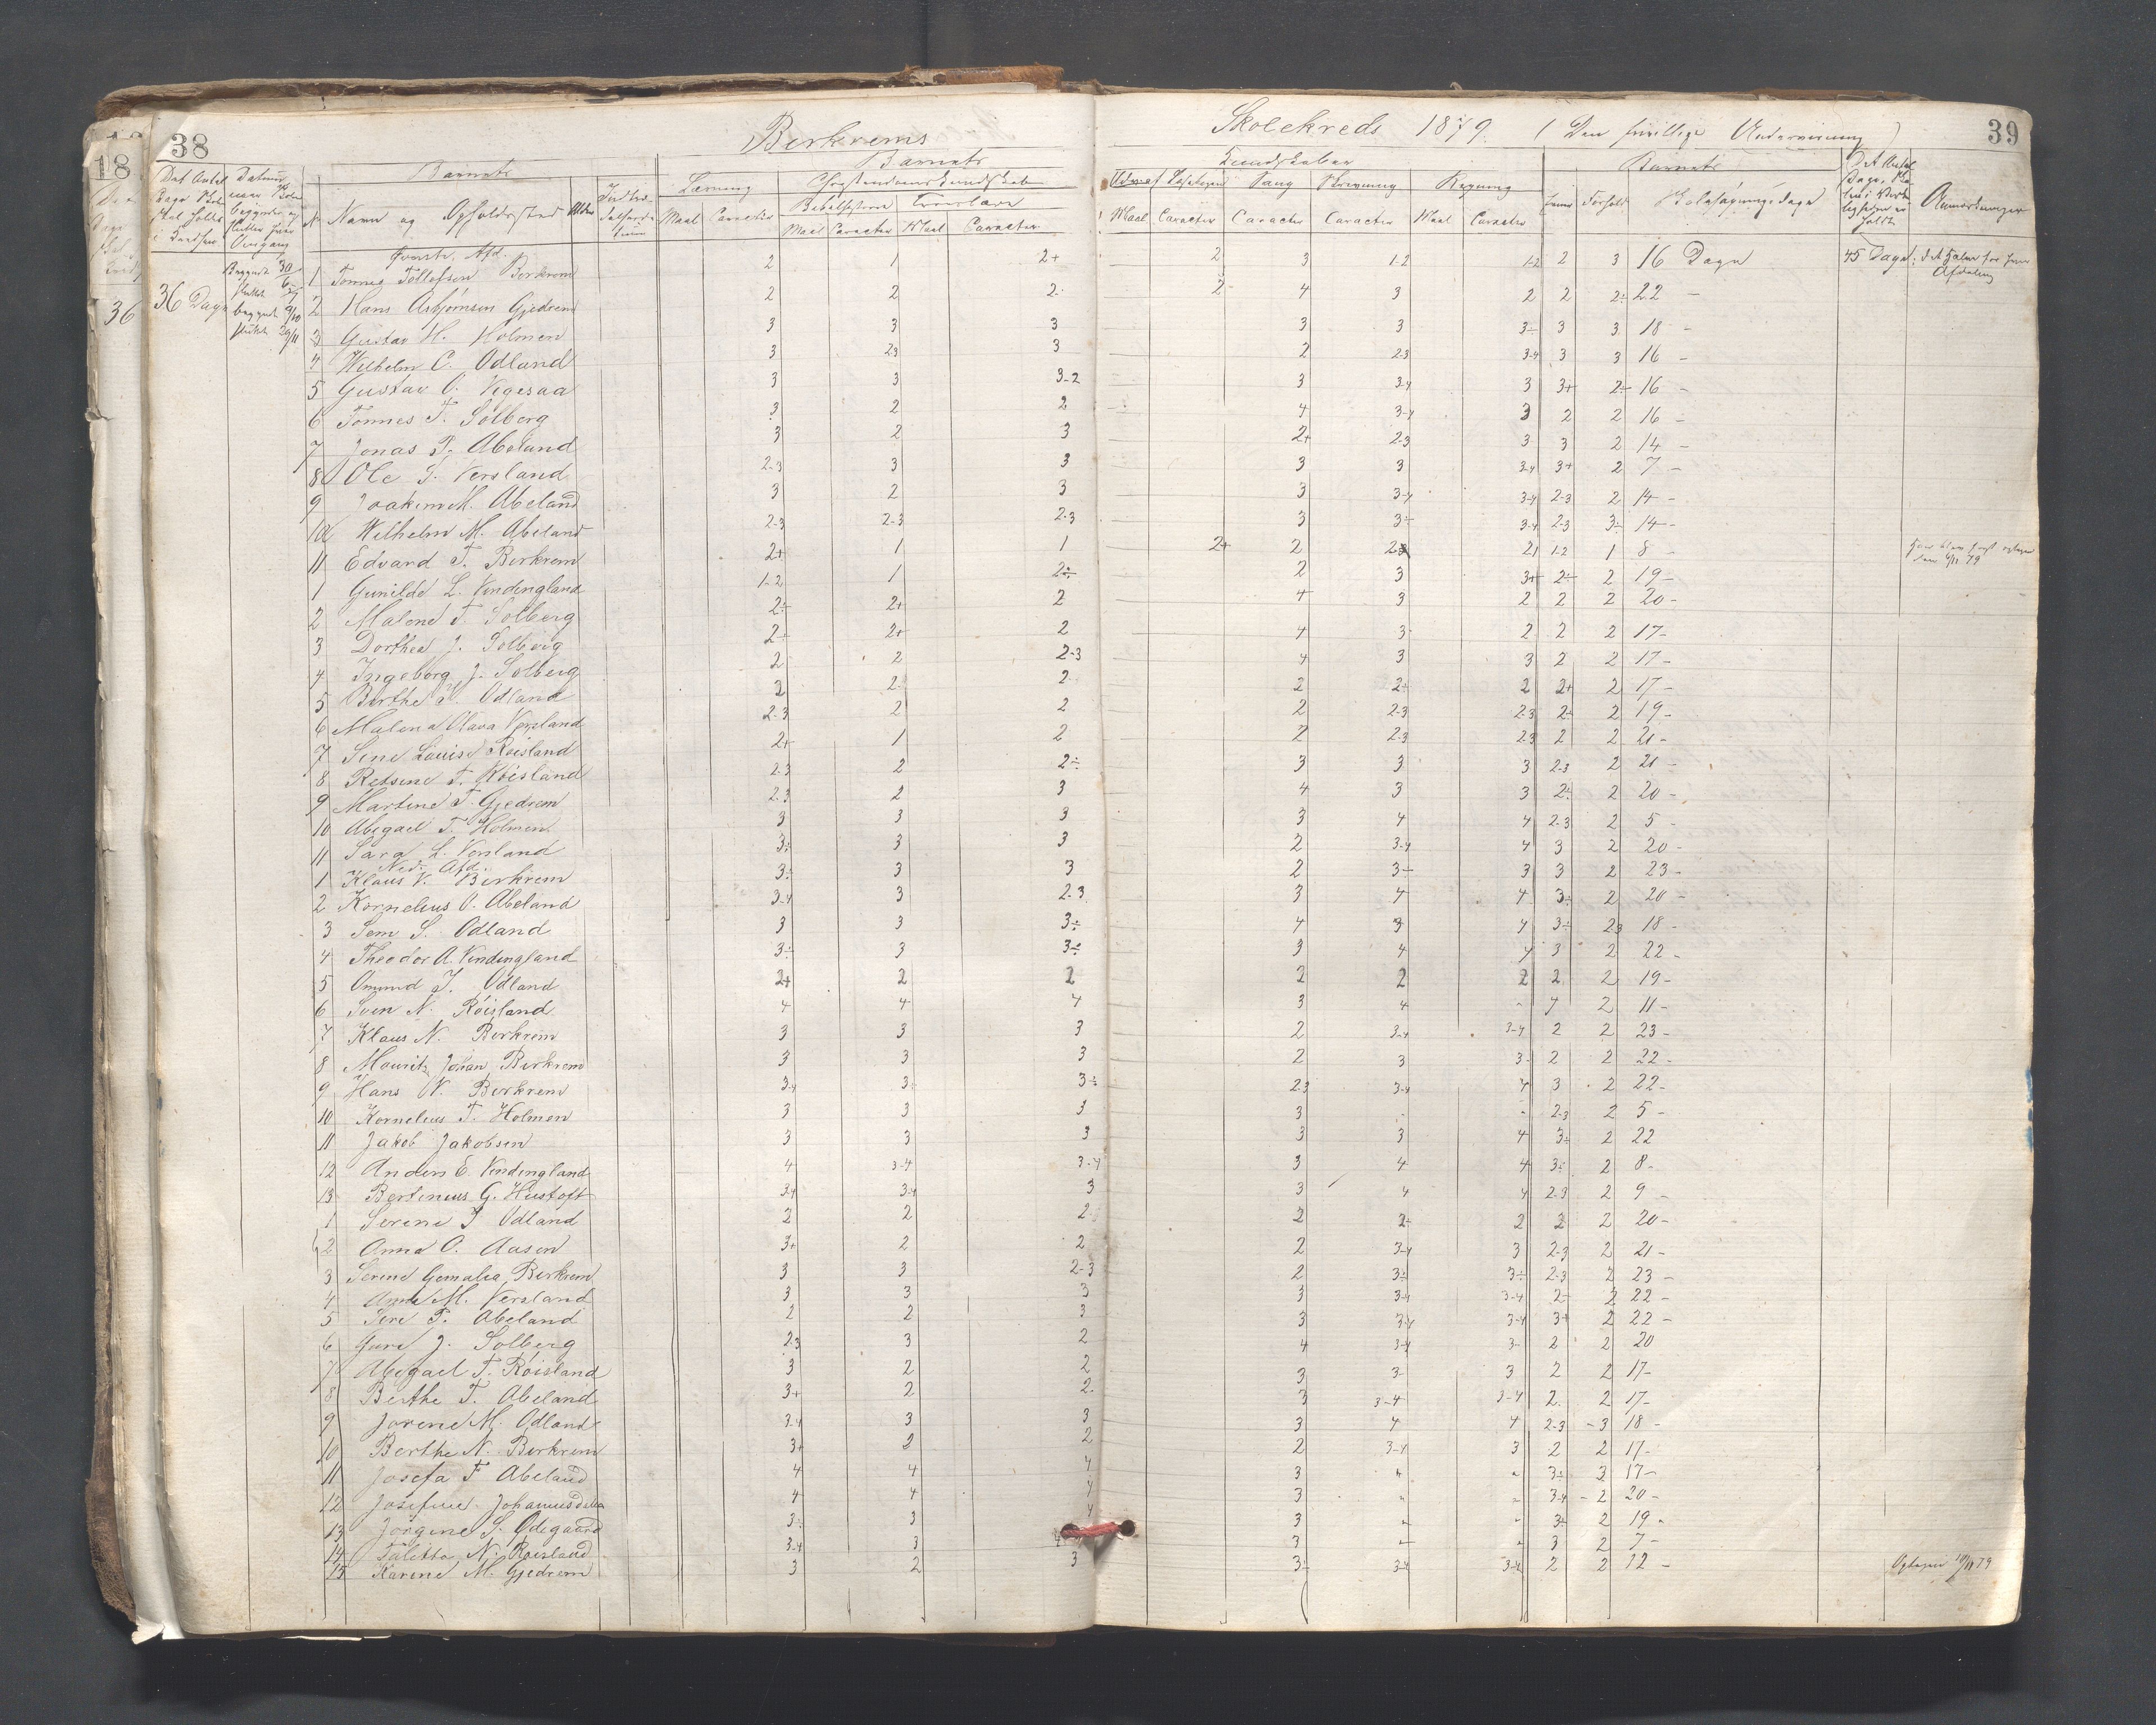 38
Berkrems
Skolekreds 1879. (Den frivillige Undervisning)
39
Barnets
Barnets
Kundskaber
Barnets
Det Antal Dage Skole skal holdes i Kredsen
Datum naar Skolen begynder og slutter hver Omgang
N
Navn og Opholdssted
Alder
Læsning
Christendomskundskab
Bibelhistorie
Troeslære
Maal
Caracter
Maal
Caracter
Maal
Caracter
Sang
Skrivning
Regning
Maal
Caracter
Caracter
Caracter
Maal
Caracter
Evner
Forhold
Skolesøgningsdage
Anmærkninger
Øverste Afd.
36 Dage
Begyndt 30/6
sluttet
begyndt 9/10
sluttet 29/11
1 Tønnes Tollefsen Berkrem 2 1 2+ 2 3 1-2 1-2 2 3 16 Dage 45 Dage
2 Hans Asbjørnsen Gjedrem 2 2 2- 2- 4 3 2 2 2÷ 22 -
3 Gustav H. Holmen 3 3 3 3 3 3÷ 3 3 18 -
4 Wilhelm C. Odland 3 2-3 3 2 2-3 3-4 3 3 16 -
5 Gustav O. Vegesaa 3 3 3-2 3 3-4 3 3+ 2÷ 16 -
6 Tønnes T. Solberg 3 2 2 4 3-4 3 2 2 16 -
7 Jonas P. Abeland 3 2 3 2+ 2-3 3 3 2 14 -
8 Ole S. Versland 2-3 3 3 3 3 3-4 3+ 2 7 -
9 Joakim M. Abeland 3 2 3 3 3-4 3-4 2-3 2 14 -
10 Wilhelm M. Abeland 2-3 2-3 2-3 3 3÷ 3-4 2-3 3÷ 14 -
11 Edvard T. Berkrem 2+ 1 1 2+ 2 1-2 1 8 -
1 Gunilde L. Vindingland 1-2 1 2÷ 2 3 3+ 2÷ 2 19 -
2 Malene T. Solberg 2÷ 2+ 2 4 3 2 2 2 20 -
3 Dorthea J. Solberg 2÷ 2+ 2 4 3- 2 2 2 17 -
4 Ingeborg J. Solberg 2 2 2-3 4 3 3 2 2 17 -
5 Berthe T. Odland 2 2- 2 2 2+ 2 2+ 2 17 -
6 Malena Olava Versland 2-3 2 2 2 2-3 2-3 2÷ 2 19 -
7 Sine Louise Røisland 2+ 1 2 2 2-3 2-3 2 2 21 -
8 Retsine T. Røisland 2-3 2 2÷ 3 3 3 2-3 2 21 -
9 Martine T. Gjedrem 2-3 2 3 4 3 3 2÷ 2 20 -
10 Abigael T. Holmen 3 3 3 3 4 4 2-3 2 5 -
11 Sara L. Versland 3÷ 3 3 2 3-4 4 3 2 20 -
Ned. Afd.
1 Klaus V. Berkrem 3÷ 3 3 2 3÷ 3 3 2 23 -
2 Kornelius O. Abeland 3-4 3 2-3 3 4 4 3÷ 2 20 -
3 Sem S. Odland 3 3 3÷ 4 3 4 3÷ 2-3 18 -
4 Theodor A. Vindingland 3÷ 3 3÷ 3 4 4 3 2 22 -
5 Omund J. Odland 2+ 2 2 2 2 2 2 2 19 -
6 Sven N. Røisland 4 4 4 3 4 - 4 2 11 -
7 Klaus N. Berkrem 3 3 3 2 3-4 3-4 2 2 23 -
8 Mauritz Johan Berkrem 3 3 3 2 3 3- 2 2 22 -
9 Hans N. Berkrem 3-4 3÷ 3÷ 2-3 3-4 4 3 2 22 -
10 Kornelius T. Holmen 3 3 3 3 - - 2-3 2 5 -
11 Jakob Jakobsen 3 3 3 3 3 4 3÷ 2 22
12 Anders E. Vindingland 4 3-4 3-4 3 4 4 3÷ 2 8 -
13 Bertinius G. Hustoft 3-4 3-4 3 3 4 4 2-3 2 9 -
1 Serine J Odland 2 2 2 2 2÷ 2 2 2 20 -
2 Anna O. Aasen 3+ 2 2 2 3-4 3 2-3 2 21 -
3 Serine Gemalia Berkrem 3 3 2-3 2 3÷ 3÷ 2-3 2 23 -
4 Anna M. Versland 3 3 3 3 3-4 3-4 2÷ 2 22 -
5 Siri P. Abeland 2 2 3 3 3-4 3-4 3+ 2 22 -
6 Guri J. Solberg 2-3 3 2 4 3-4 3- 2 2 20
7 Abigael T. Røisland 3 2 2 3 3- 3 2 2 17 -
8 Berthe T. Abeland 3+ 2 2 3 3-4 3-4 2 2 17 -
9 Jorine M. Odland 3-4 3 3 3 4 4 2-3 - 3 18 -
10 Berthe N. Berkrem 3+ 2 2 2 3-4 3 2 2 17 -
11 Josefa T Abeland 4 4 4 3 3÷ 3 17 -
12 Josefine Johannesdatter 4 4 4 3 3-4 - 2 20 -
13 Jørgine S. Ødegaard 3÷ 3 4 3 3÷ 2 19 -
14 Talitta N. Røisland 3-4 3 3 3 2 7 -
15 Karine M. Gjedrem 3 2 3 3÷ 3-4 3-4 2 2 12 - Optagen 10/11 79
18
36